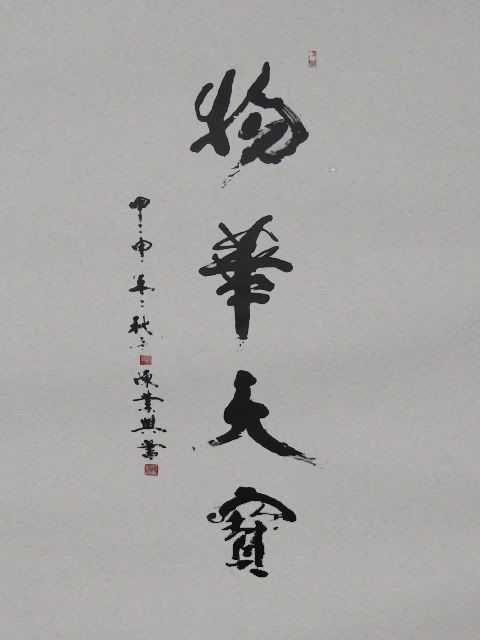 物華天寳
甲申年之秋
陳業興書